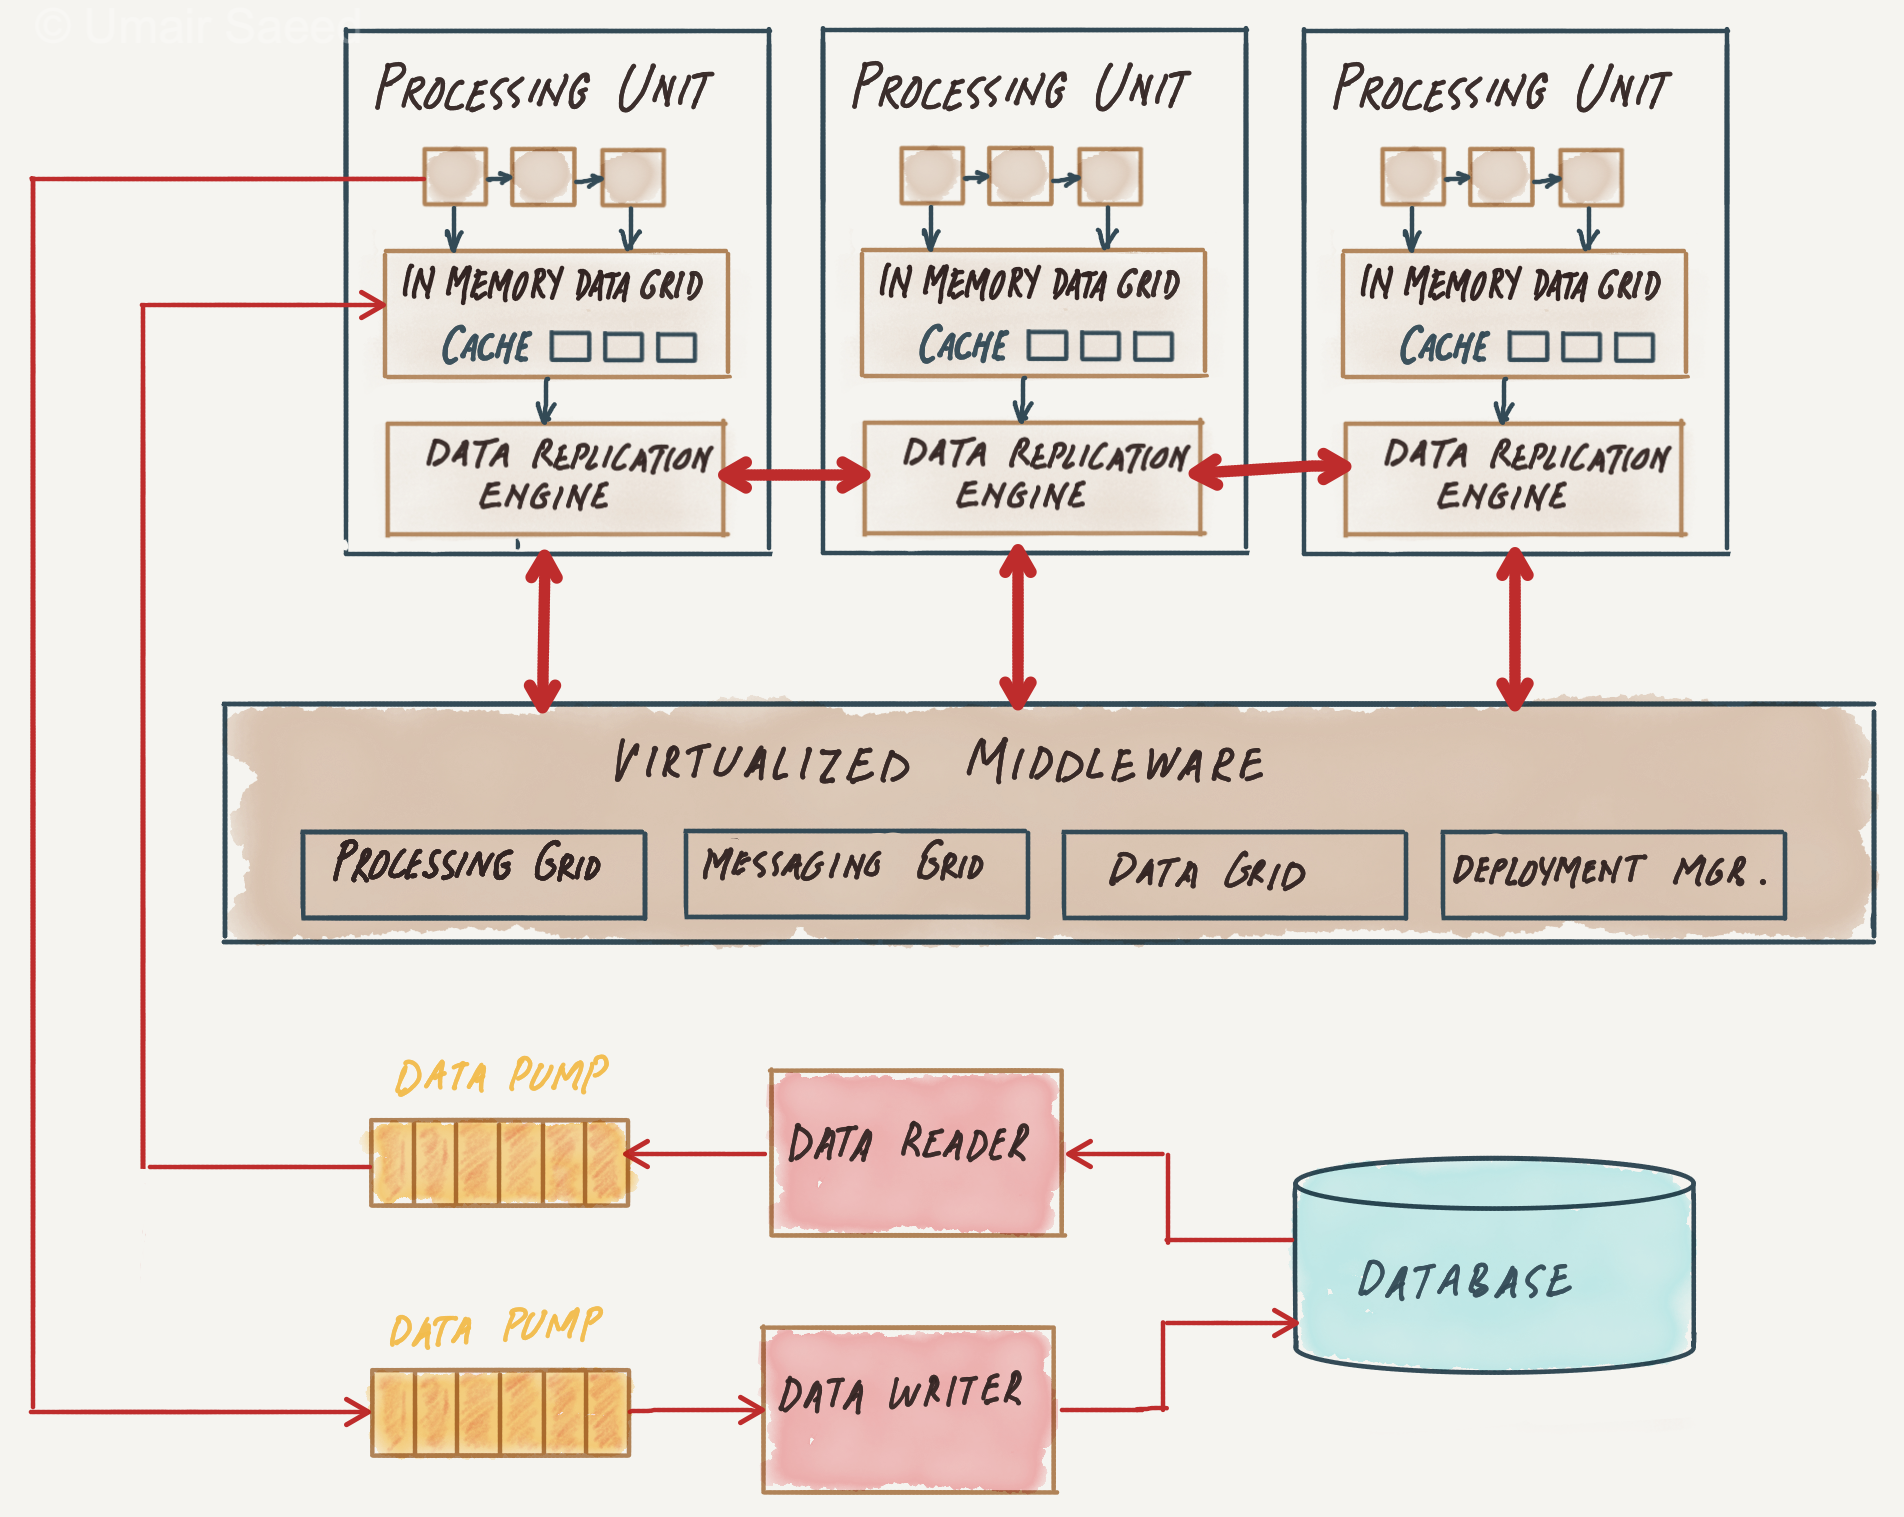 © Umair Saeed
PROCESSING UNIT
IN MEMORY DATA GRID
CACHE
DATA REPLICATION
ENGINE
PROCESSING UNIT
IN MEMORY DATA GRID
CACHE
DATA REPLICATION
ENGINE
PROCESSING UNIT
IN MEMORY DATA GRID
CACHE
DATA REPLICATION
ENGINE
VIRTUALIZED MIDDLEWARE
PROCESSING GRID
MESSAGING GRID
DATA GRID
DEPLOYMENT MGR.
DATA PUMP
DATA READER
DATABASE
DATA PUMP
DATA WRITER